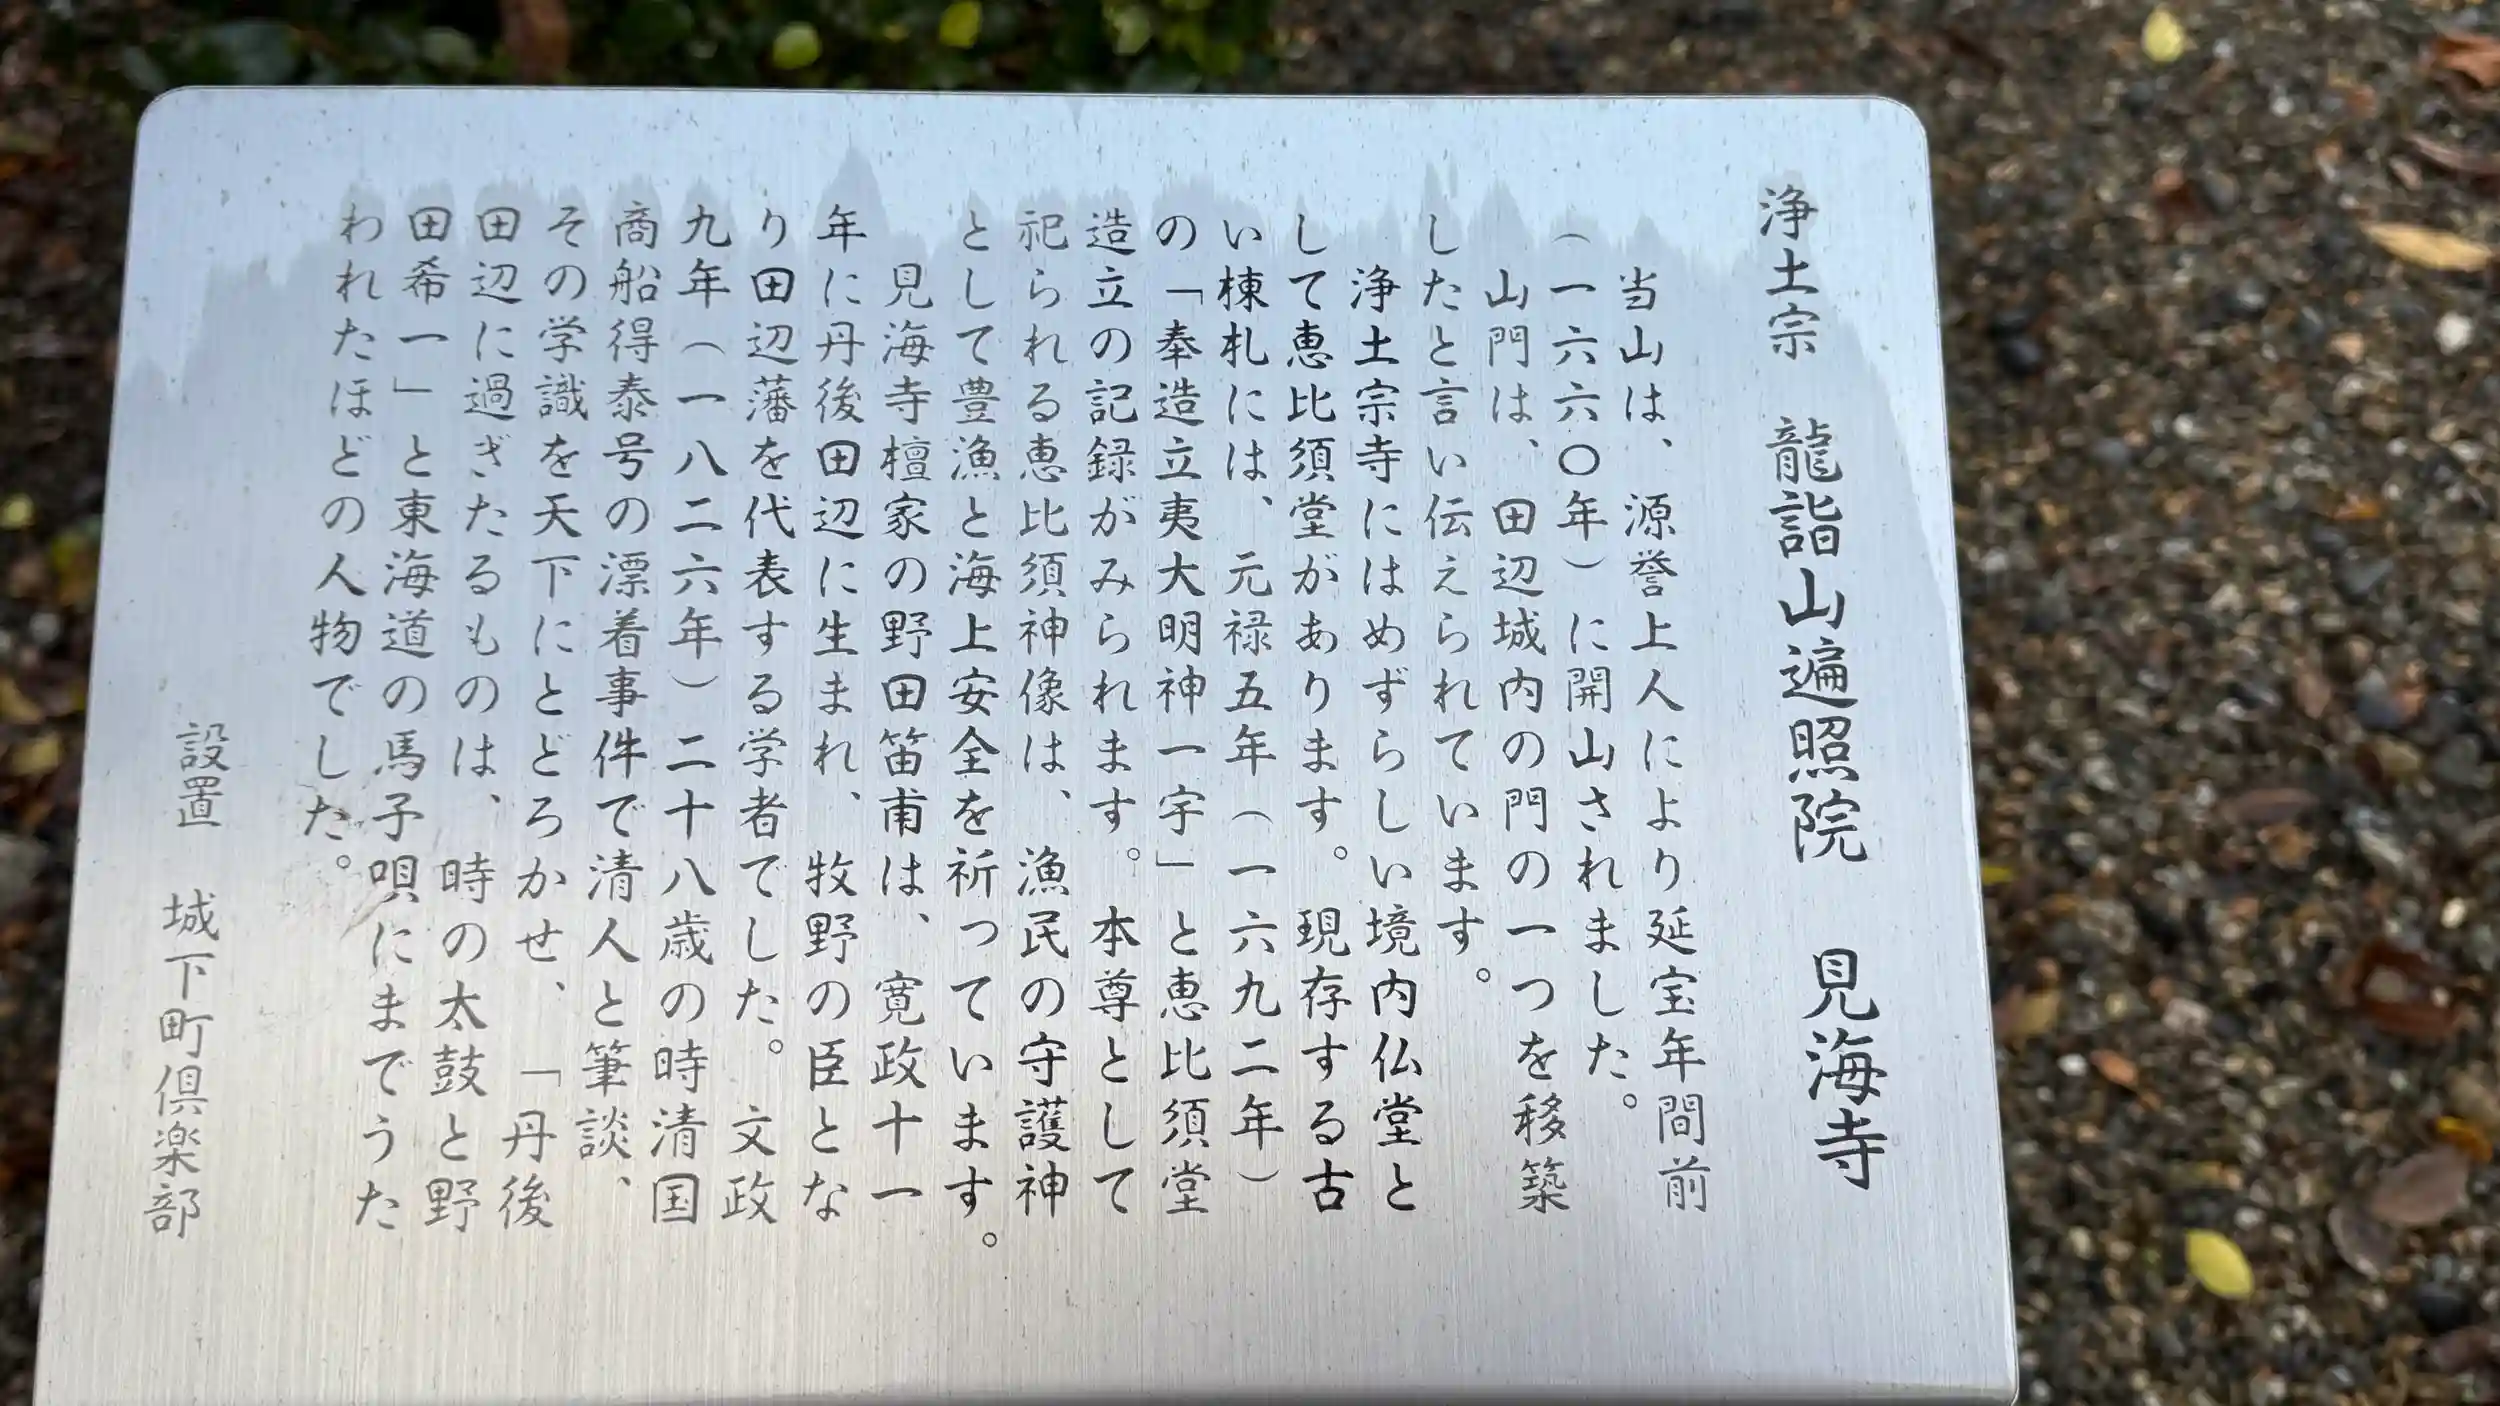 浄土宗　龍詣山遍照院　見海寺
当山は、源誉上人により延宝年間前
（一六六〇年）に開山されました。
山門は、田辺城内の門の一つを移築
したと言い伝えられています。
浄土宗寺にはめずらしい境内仏堂と
して恵比須堂があります。現存する古
い棟札には、元禄五年（一六九二年）
の「奉造立夷大明神一宇」と恵比須堂
造立の記録がみられます。本尊として
祀られる恵比須神像は、漁民の守護神
として豊漁と海上安全を祈っています。
見海寺檀家の野田笛甫は、寛政十一
年に丹後田辺に生まれ、牧野の臣とな
り田辺藩を代表する学者でした。文政
九年（一八二六年）二十八歳の時清国
商船得泰号の漂着事件で清人と筆談、
その学識を天下にとどろかせ、「丹後
田辺に過ぎたるものは、時の太鼓と野
田希一」と東海道の馬子唄にまでうた
われたほどの人物でした。
設置　城下町倶楽部